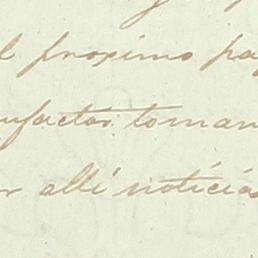 l proximo pa
nfactor toman
r alli noticias